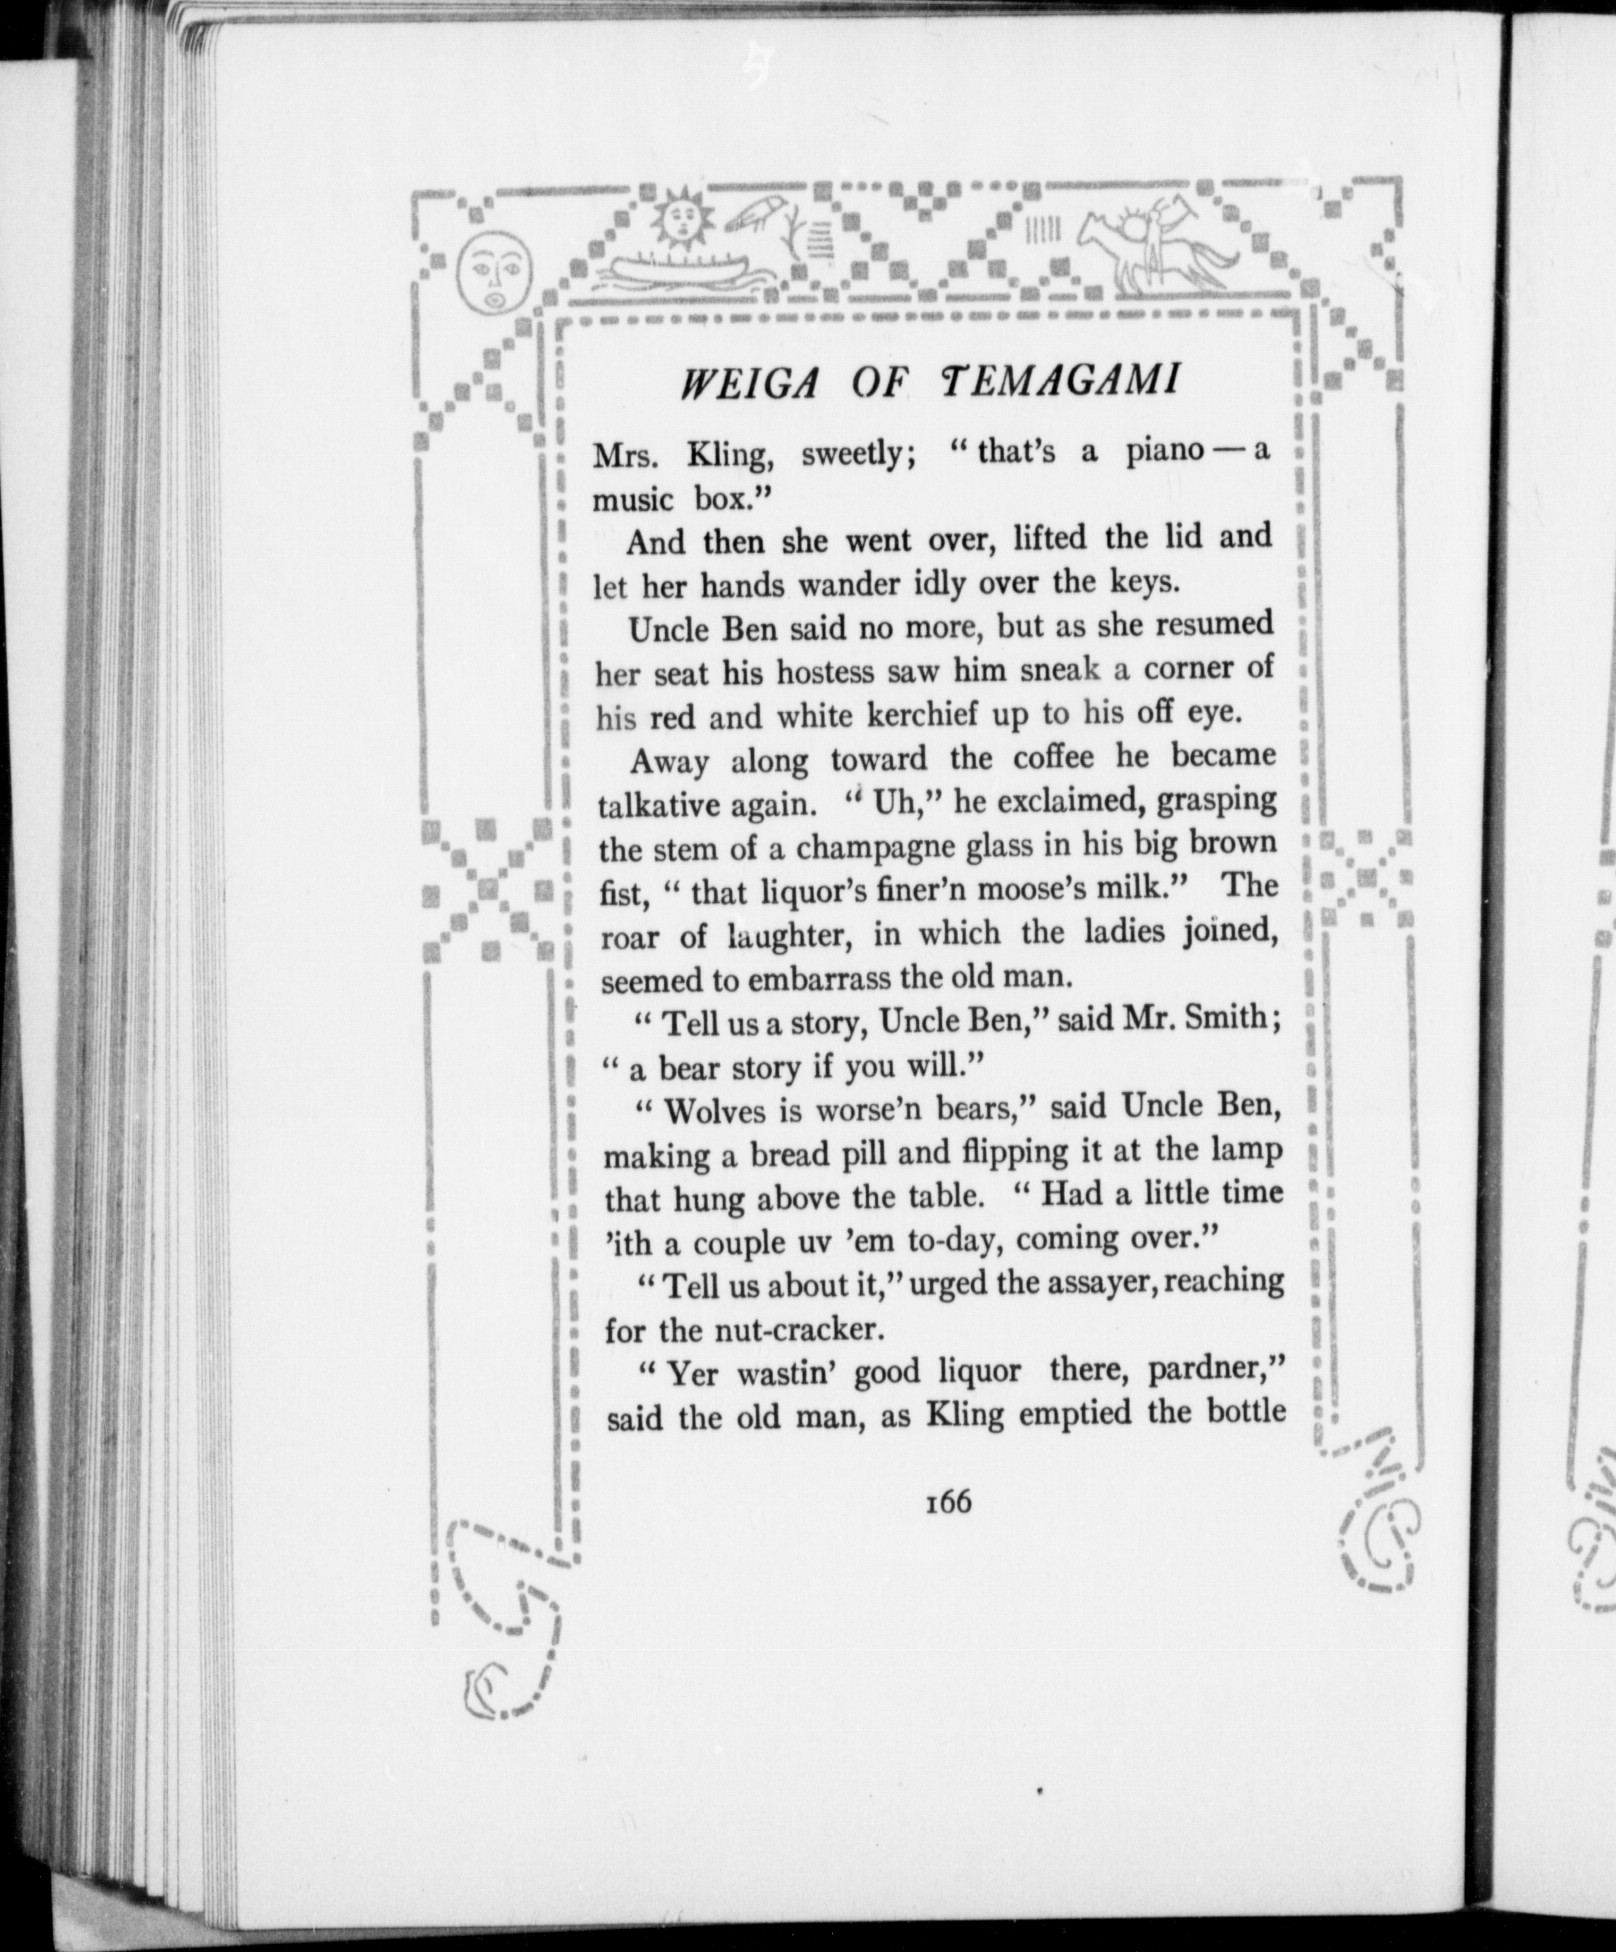 WEIGA OF TEMAGAMI
Mrs. Kling, sweetly; “ that’s a piano — a
music box.”
And then she went over, lifted the lid and
let her hands wander idly over the keys.
Uncle Ben said no more, but as she resumed
her seat his hostess saw him sneak a corner of
his red and white kerchief up to his off eye.
Away along toward the coffee he became
talkative again. “ Uh,” he exclaimed, grasping
the stem of a champagne glass in his big brown
fist, “ that liquor’s finer’n moose’s milk.” The
roar of laughter, in which the ladies joined,
seemed to embarrass the old man.
“ Tell us a story, Uncle Ben,” said Mr. Smith;
“ a bear story if you will.”
“ Wolves is worse’n bears,” said Uncle Ben,
making a bread pill and flipping it at the lamp
that hung above the table. “ Had a little time
’ith a couple uv ’em to-day, coming over.”
“ Tell us about it,” urged the assayer, reaching
for the nut-cracker.
“ Yer wastin’ good liquor there, pardner,”
said the old man, as Kling emptied the bottle
166